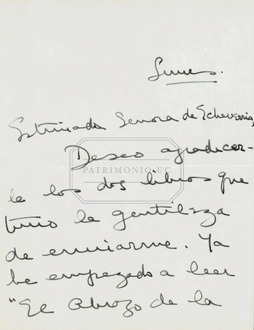 Lunes.
Estimada Señora de Echeverría,
Deseo agradecer-
le los dos libros que
tuvo la gentileza
de enviarme. Ya
he empezado a leer
"El Abrazo de la
PATRIMONIO UC